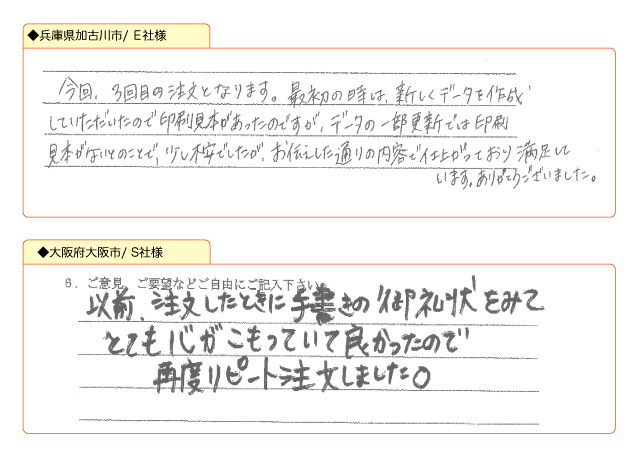 ◆兵庫県加古川市/ E社様
今回、3回目の注文となります。最初の時は、新しくデータを作成
していただいたので印刷見本があったのですが、データの一部更新では印刷
見本がないとのことで、少し不安でしたが、お伝えした通りの内容で仕上がっており満足して
います。ありがとうございました。
◆大阪府大阪市/ S社様
6．ご意見、ご要望などご自由にご記入下さい。
以前、注文したときに手書きの'御礼状'をみて
とても心がこもっていて良かったので
再度リピート注文しました○